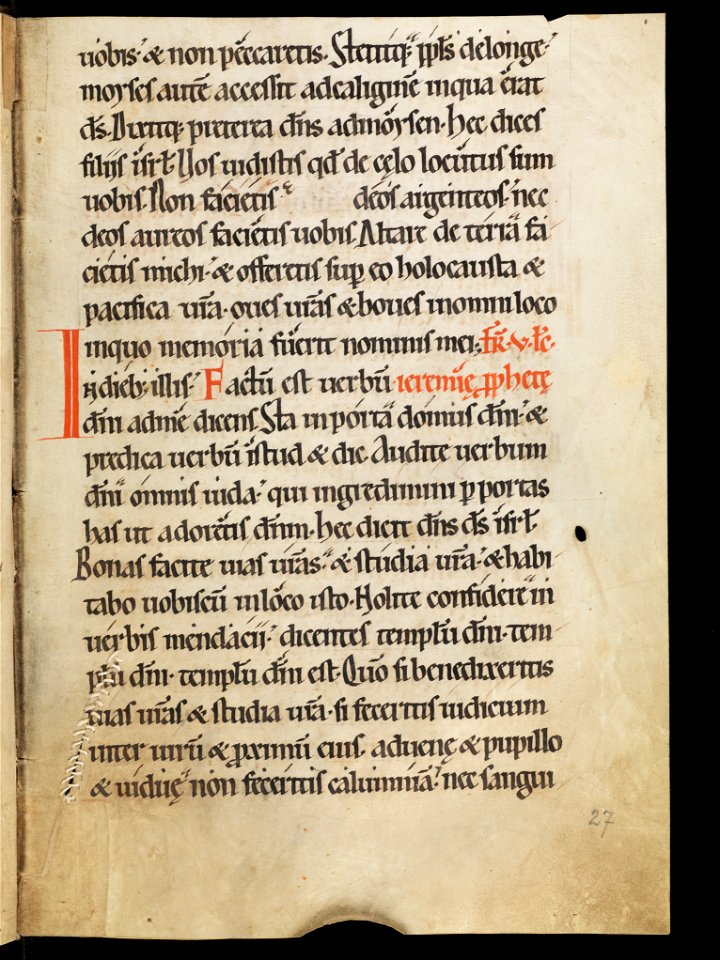 uobis· & non peccaretis. Stetitq; ppl̄s delonge·
moyses autē accessit adcaliginē inqua erat
d̄s. Dixitq; preterea dn̄s admoysen· Hec dices
filijs isrl̄. Vos uidistis qd̄ de cęlo locutus sum
uobis. Non facietis deos argenteos· nec
deos aureos facietis uobis. Altare de terra fa
cietis michi· & offeretis sup eo holocausta &
pacifica ur̄a· oues ur̄as & boues inomni loco
inquo memoria fuerit nominis mei; fr̄· v· le·
In dieb; illis· Factū est uerbū ieremię pphetę
dn̄i admē dicens. Sta in porta domus dn̄i· &
predica uerbū istud & dic. Audite uerbum
dn̄i omnis iuda· qui ingredimini p portas
has ut adoretis dn̄m· hec dicit dn̄s d̄s isrl̄.
Bonas facite uias ur̄as· & studia ur̄a· & habi
tabo uobiscū inloco isto. Nolite confidere in
uerbis mendacij· dicentes templū dn̄i· tem
plū dn̄i· templū dn̄i est. Qūo si benedixeritis
uias ur̄as & studia ur̄a· si feceritis iudicium
inter uirū & proximū eius· aduenę & pupillo
& uiduę non feceritis calumniā· nec sangui
27